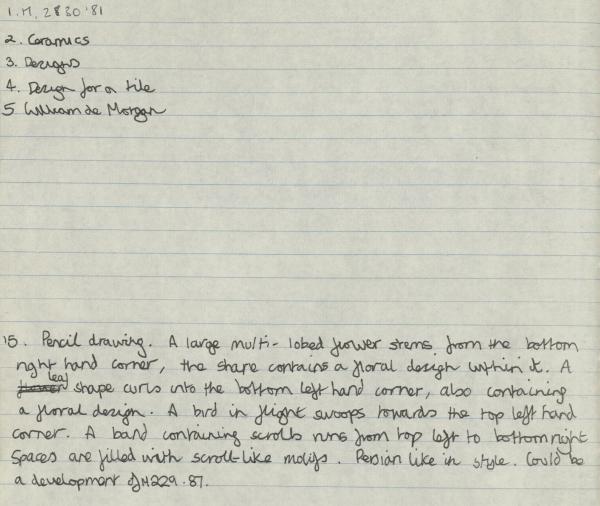 1. M. 2830 '81
2. Ceramics
3. Designs
4. Design for a tile
5 William de Morgan
15. Pencil drawing. A large multi-lobed flower stems from the bottom
right hand corner, the shape contains a floral design within it. A
leaf shape curls into the bottom left hand corner, also containing
a floral design. A bird in flight swoops towards the top left hand
corner. A band containing scrolls runs from top left to bottom right
Spaces are filled with scroll-like motifs. Persian like in style. Could be
a development of M229.87.